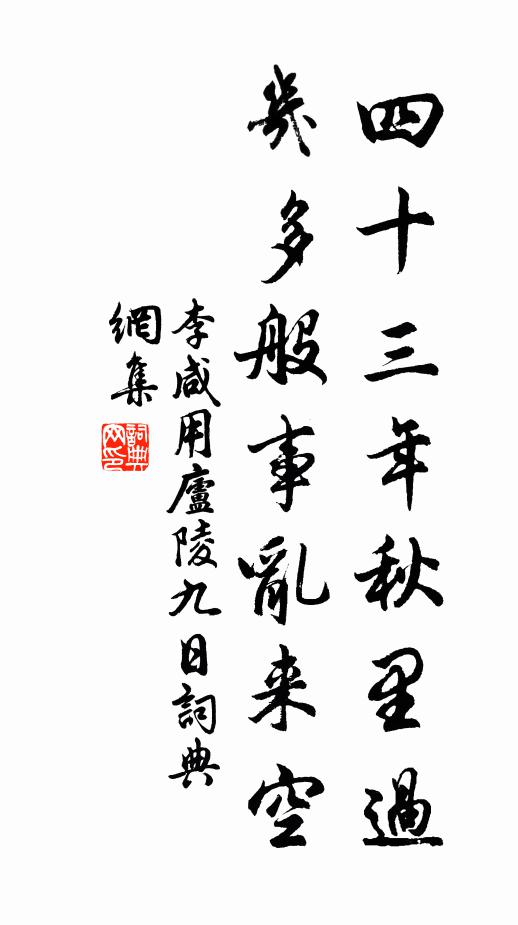 四十三年秋里過
幾多般事亂来空
李咸用廬陵九日詞典
網集
詞典
网印